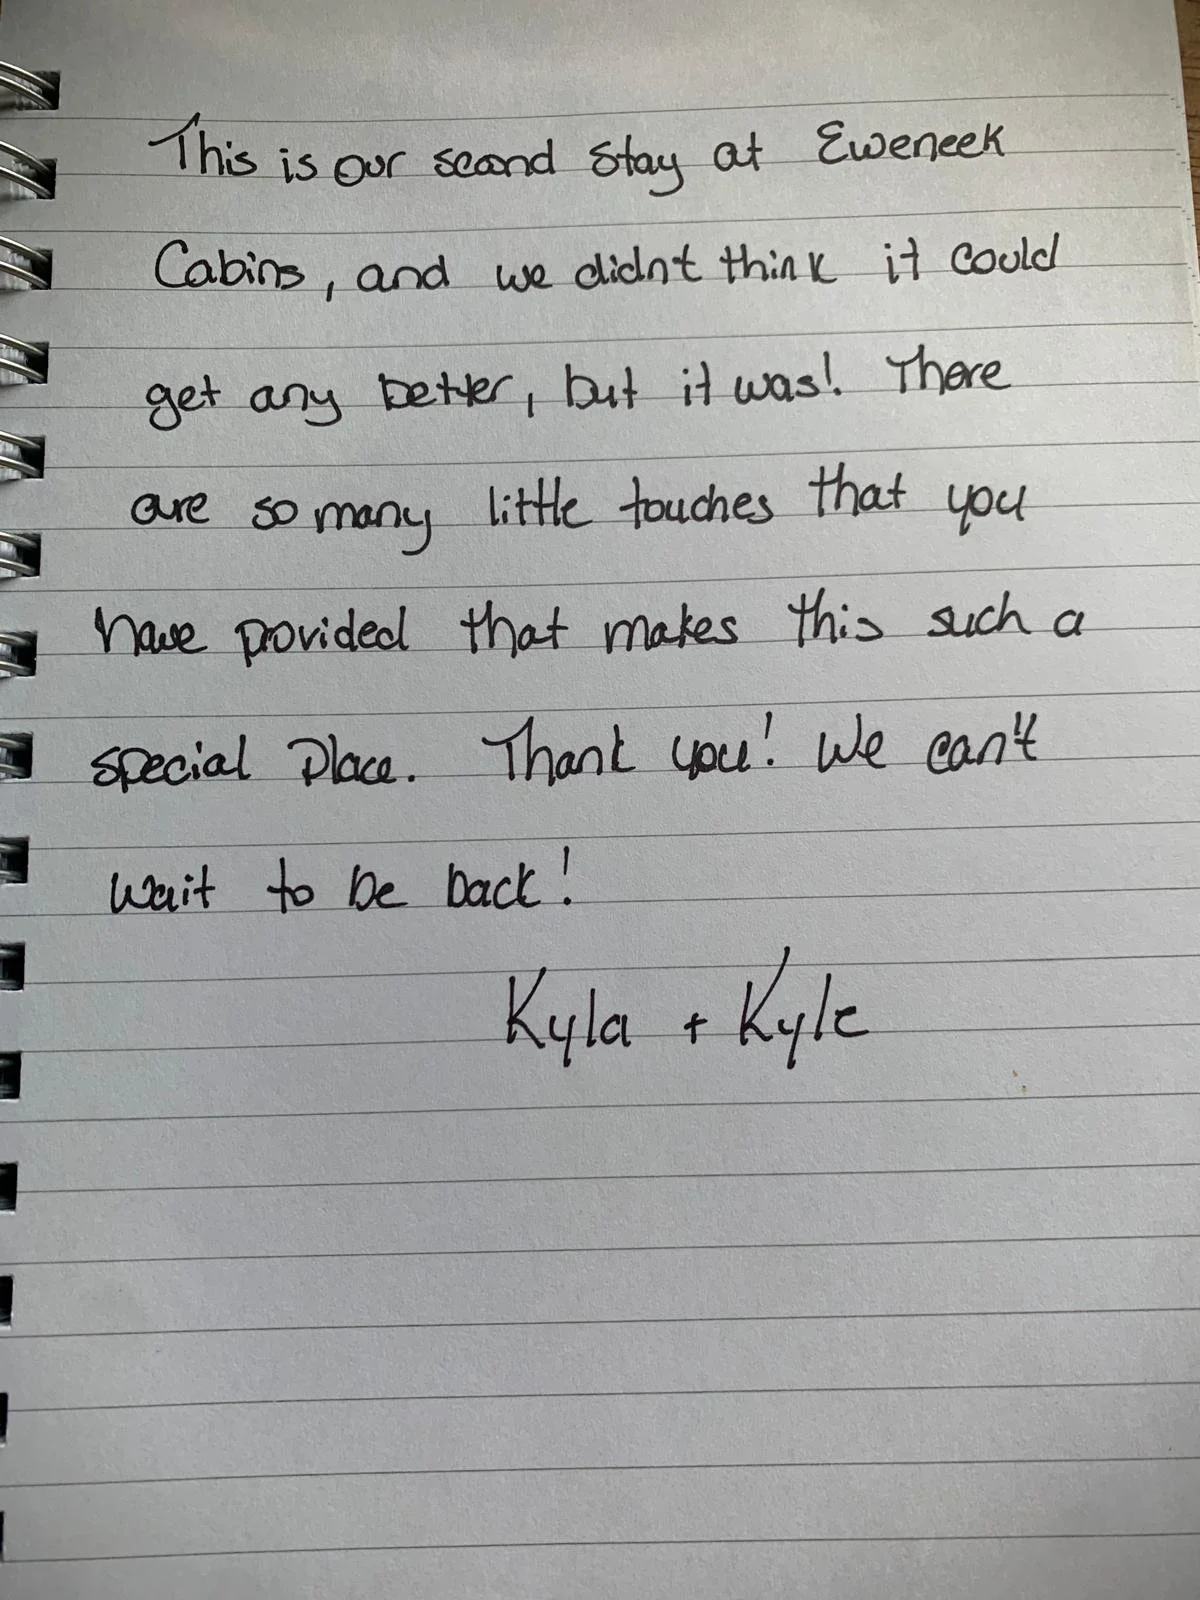 This is our second stay at Eweneek
Cabins, and we didnt think it could
get any better, but it was! There
are so many little touches that you
have provided that makes this such a
special place. Thank you! We can't
wait to be back!
Kyla + Kyle